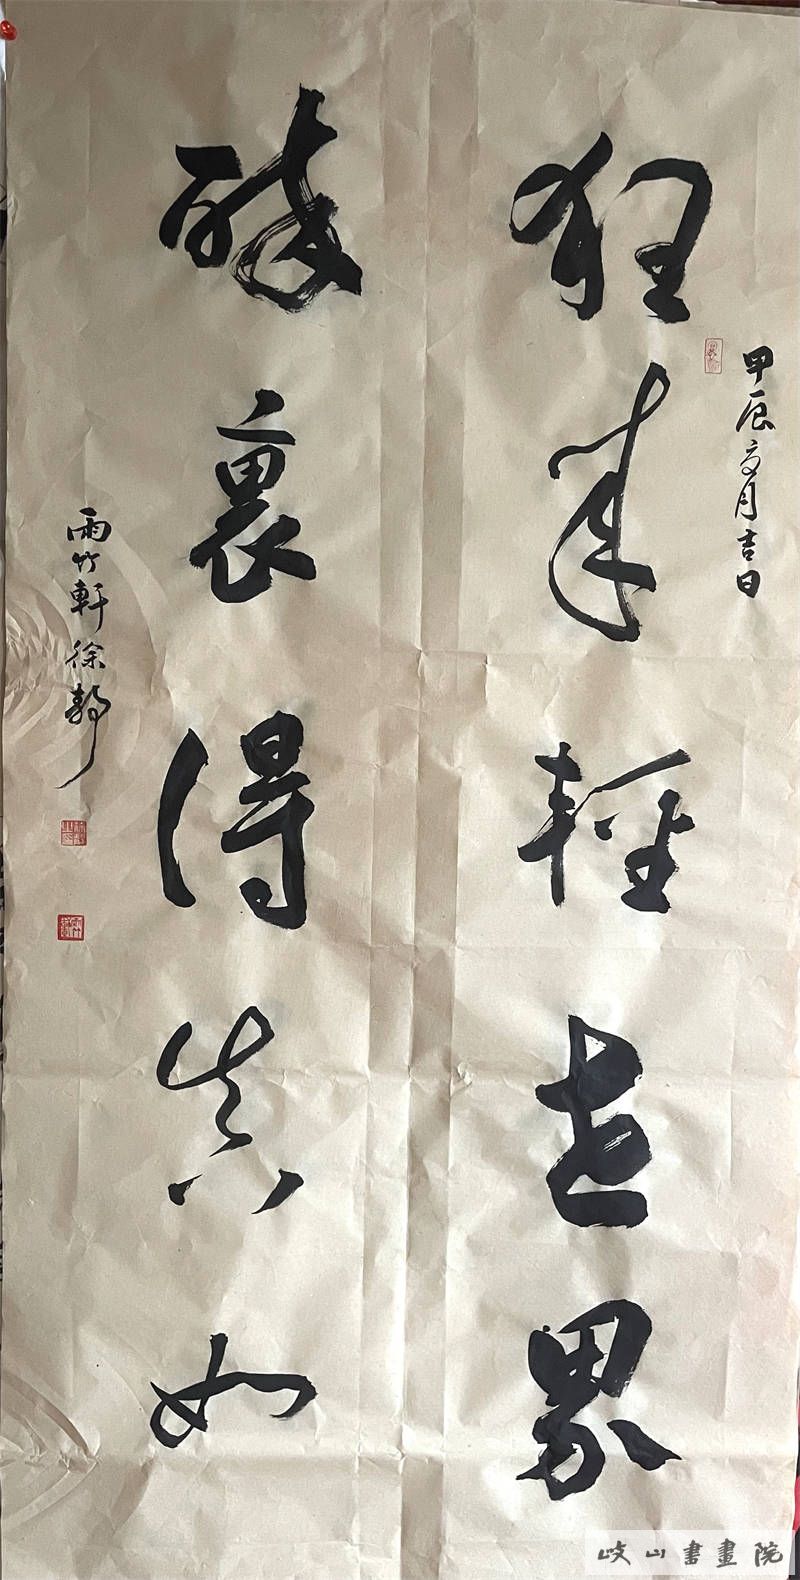 甲辰六月吉日
狂来輕世界
醉裏得真如
雨竹軒徐静
岐山書畫院